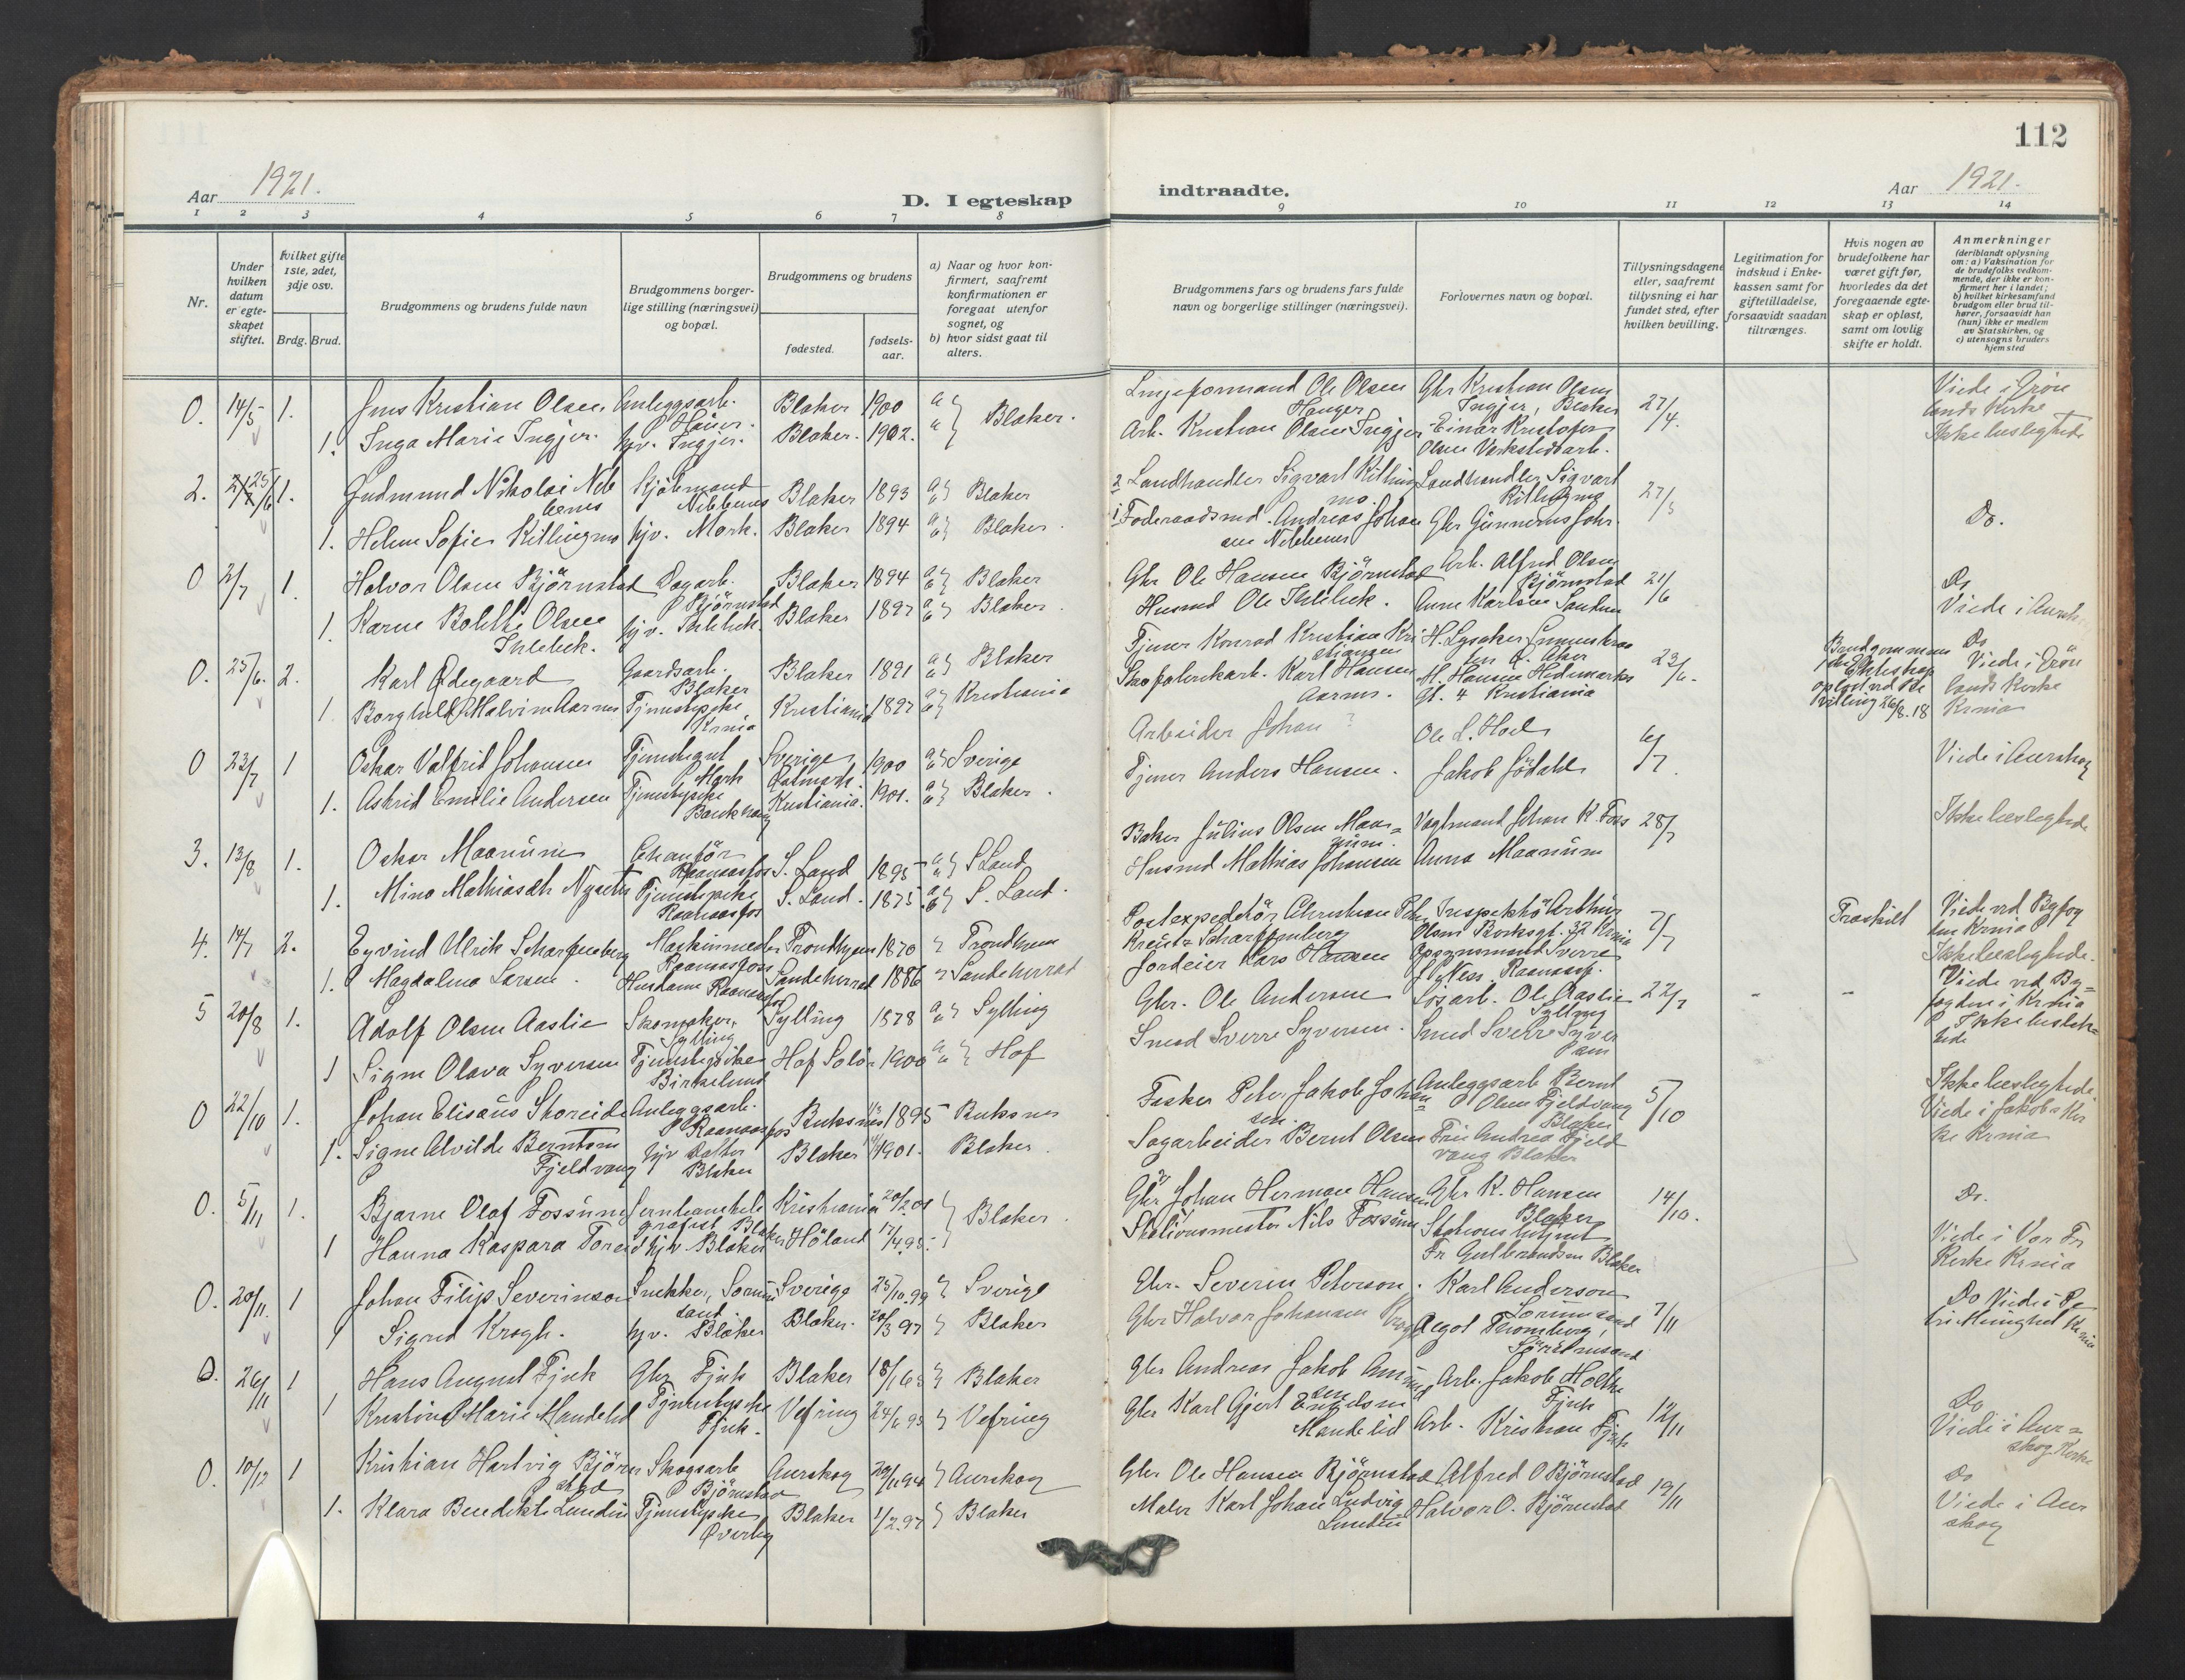 112
Aar 1921.
D. I egteskap
indtraadte.
Aar 1921.
1 2 3 4 5 6 7 8 9 10 11 12 13 14
Nr.
Under hvilken datum er egteskapet stiftet.
Hvilket gifte 1ste, 2det, 3dje osv.
Brdg. Brud.
Brudgommens og brudens fulde navn
Brudgommens borgerlige stilling (næringsvei) og bopæl.
Brudgommens og brudens
fødested.
fødselsaar.
a) Naar og hvor konfirmert, saafremt konfirmationen er foregaat utenfor sognet, og
b) hvor sidst gaat til alters.
Brudgommens fars og brudens fars fulde navn og borgerlige stillinger (næringsvei).
Forlovernes navn og bopæl.
Tillysningsdagene eller, saafremt tillysning ei har fundet sted, efter hvilken bevilling.
Legitimation for indskud i Enkekassen samt for giftetilladelse, forsaavidt saadan tiltrænges.
Hvis nogen av brudefolkene har været gift før, hvorledes da det foregaaende egteskap er opløst, samt om lovlig skifte er holdt.
Anmerkninger (deriblandt oplysning om: a) Vaksination for de brudefolks vedkommende, der ikke er konfirmert her i landet; b) hvilket kirkesamfund brudgom eller brud tilhører, forsaavidt han (hun) ikke er medlem av Statskirken, og c) utensogns bruders hjemsted
0. 14/5 1. Jens Kristian Olsen Anleggsarb. Blaker 1900 Blaker. Linjeformand Ole Olsen Hauger Gbr Kristian Olsen Ingjer, Blaker 27/4. Viede i Grønlands Kirke
1. Inga Marie Ingjer. hjv. Ingjer. Blaker. 1902. Arb. Kristian Olsen Ingjer Einar Kristofer Olsen Verkstedarb. Ikke beslegtede
2. 25/6 1. Gudmund Nikolai Nebbenes Kjøbmand Nebbenes Blaker 1893 Blaker 2 Landhandler Sigvart Killingmo. Landhandler Sigvart Killingmo 27/5 Do.
1. Helene Sofie Killingmo hjv. Mork. Blaker 1894 Blaker. 1 Føderaadsmd. Andreas Johansen Nebbenes Gbr Gunnerius Johs.
0 2/7 1. Halvor Olsen Bjørnstad Dagarb. Bjørnstad Blaker 1894 Blaker Gbr Ole Hansen Bjørnstad Arb. Alfred Olsen Bjørnstad 21/6 Do
1. Karen Bolette Olsen Ihlebek. hjv. Ihlebek. Blaker 1897 Blaker. Husmd Ole Ihlebek. Anne Karlsen Sanden Viede i Aursk.
0. 25/6. 2. Karl Ødegaard Gaardsarb. Blaker Blaker 1891 Blaker Tjener Konrad Kristian Kristiansen H. Lysaker 23/6. Brudgommens Ekteskap opløst ved Bevilling 26/8.18 Do Viede i Grønlands Kirke Krnia
1 Borghild Malvine Aarnes Tjenestepike Krnia Kristiania 1897 Kristiania Skofabrikarb. Karl Hansen Aarnes. M. Hansen Hedemarks gt. 4 Kristiania
0 23/7 1 Oskar Valfrid Johansen Tjenestegut Mork Sverige 1900 Sverige Arbeider Johan ? Ole L. Hoel 6/7 Viede i Aurskog
1. Astrid Emilie Andersen Tjenestepike Kristiania. 1901. Blaker. Tjener Anders Hansen. Jakob Jødahl
3. 13/8 1. Oskar Maanum Chauffør Raanaasfos S. Land 1895 S. Land Baker Julius Olsen Maanum. Vagtmand Johan K. Foss 28/7 Ikke beslegtede
1. Mina Mathiasdtr Nysetn Tjenestepike Raanaasfos S. Land. 1875. S. Land. Husmd Mathias Johansen Anna Maanum
4. 14/7 2. Eyvind Ulrik Scharffenberg Maskinmester Raanaasfoss Trondhjem 1870 Trondhjem Postexpeditør Christian Peter Kreutz Scharffenberg Inspektør Arthur Olsen Borksgt. 32 Krnia 7/7 Fraskilt Viede ved Byfogden Krnia
1. Magdalena Larsen. Husdame Raanaasfos Sandeherred 1886 Sandeherred Jordeier Lars Hansen Opsynsmand Sverre J. Ness Raanaasf. Ikke beslegtede.
5 20/8 1. Adolf Olsen Aaslie Skomaker, Sylling Sylling 1878 Sylling Gbr. Ole Andersen Løsarb. Ole Aaslie Sylling 22/7 - - Viede ved Byfogden i Krnia
1 Signe Olava Syversen Tjenestepike Birkelund Hof Solør 1900 Hof Smed Sverre Syversen. Smed Sverre Syversen Ikke beslektede
0 22/10 1. Johan Elisæus Skoreide Anleggsarb. Raanaasfos Buksnes 1895 Buksnes Fisker Peter Jakob Johansen. Anleggsarb Bernt Olsen Fjeldvang Blaker 5/10 Ikke beslegtede
1. Signe Alvilde Berntsen Fjeldvang hjv datter Blaker Blaker 1901. Blaker. Sagarbeider Bernt Olsen Fru Andrea Fjeldvang Blaker Viede i Jakobs Kirke Krnia
0. 5/11 1. Bjarne Olaf Fossum Jernbanetelegrafist Blaker Kristiania 20/2 01 Blaker. Gbr Johan Herman Hansen Gbr K. Hansen Blaker 14/10. Do.
1 Hanna Kaspara Toreid hjv Blaker Høland 17/4 98. Stationsmester Nils Fossum Stations Fr Gulbrandsen Blaker Viede i Vor Fr Kirke Krnia
0. 20/11. 1 Johan Filip Severinson Snekker, Sørumsand Sverige 25/10.99 Sverige Gbr. Severin Peterson. Karl Anderson Sørumsand 7/11 Do Viede i Petri Menighet Krnia
1 Sigrid Krogh. hjv. Blaker Blaker. 20/3 97 Blaker Gbr Halvor Johansen Krogh Algot Tromberg, Sørumsand
0. 26/11 1 Hans August Fjuk Gbr Fjuk Blaker 18/1 63 Blaker Gbr Andreas Jakob Amundsen Arb. Jakob Holthe Fjuk 12/11 Do
1 Kristine Marie Mandelid Tjenestepike Fjuk. Vefring 24/6 93 Vefring Gbr Karl Gjert Engelsen Mandelid Arb. Kristian Fjuk Viede i Aurskog Kirke
0. 10/12 1 Kristian Hartvig Bjørnstad Skogsarb Bjørnstad Aurskog 29/11 94 Aurskog Gbr Ole Hansen Bjørnstad Alfred O Bjørnstad 19/11 Do
1. Klara Benedikte Lundin Tjenestepike Øverby Blaker 1/2 97 Blaker Maler Karl Johan Ludvig Lundin Halvor O. Bjørnstad Viede i Aurskog